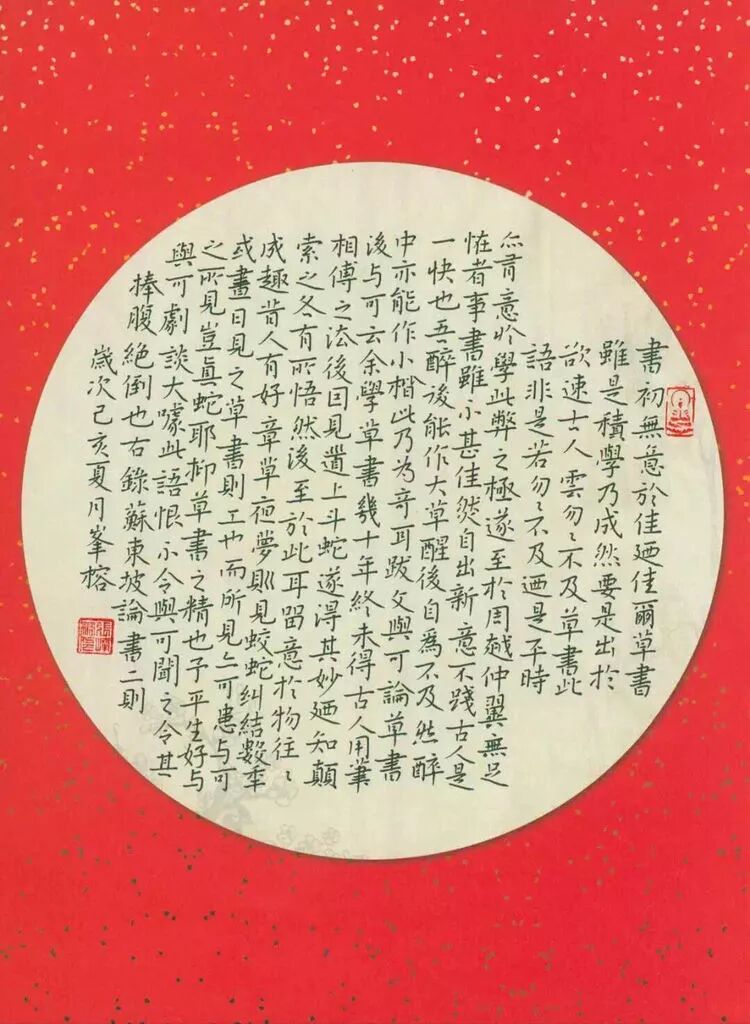 書初無意於佳廼佳爾草書
雖是積學乃成然要是出於
欲速古人雲匆〻不及草書此
語非是若匆〻不及廼是平時
亦有意於學此弊之極遂至於周越仲翼無足
怪者事書雖小甚佳然自出新意不踐古人是
一快也吾醉後能作大草醒後自為不及然醉
中亦能作小楷此乃為奇耳跋文與可論草書
後与可云余學草書幾十年終未得古人用筆
相傳之法後因見道上斗蛇遂得其妙廼知顛
索之各有所悟然後至於此耳留意於物往〻
成趣昔人有好草草夜夢則見蛟蛇糾結數年
或晝日見之草書則工也而所見亦可患与可
之所見豈真蛇耶抑草書之精也予平生好与
與可劇談大噱此語恨不令與可聞之令其
捧腹絕倒也右錄蘇東坡論書二則
歲次己亥夏月峯榕